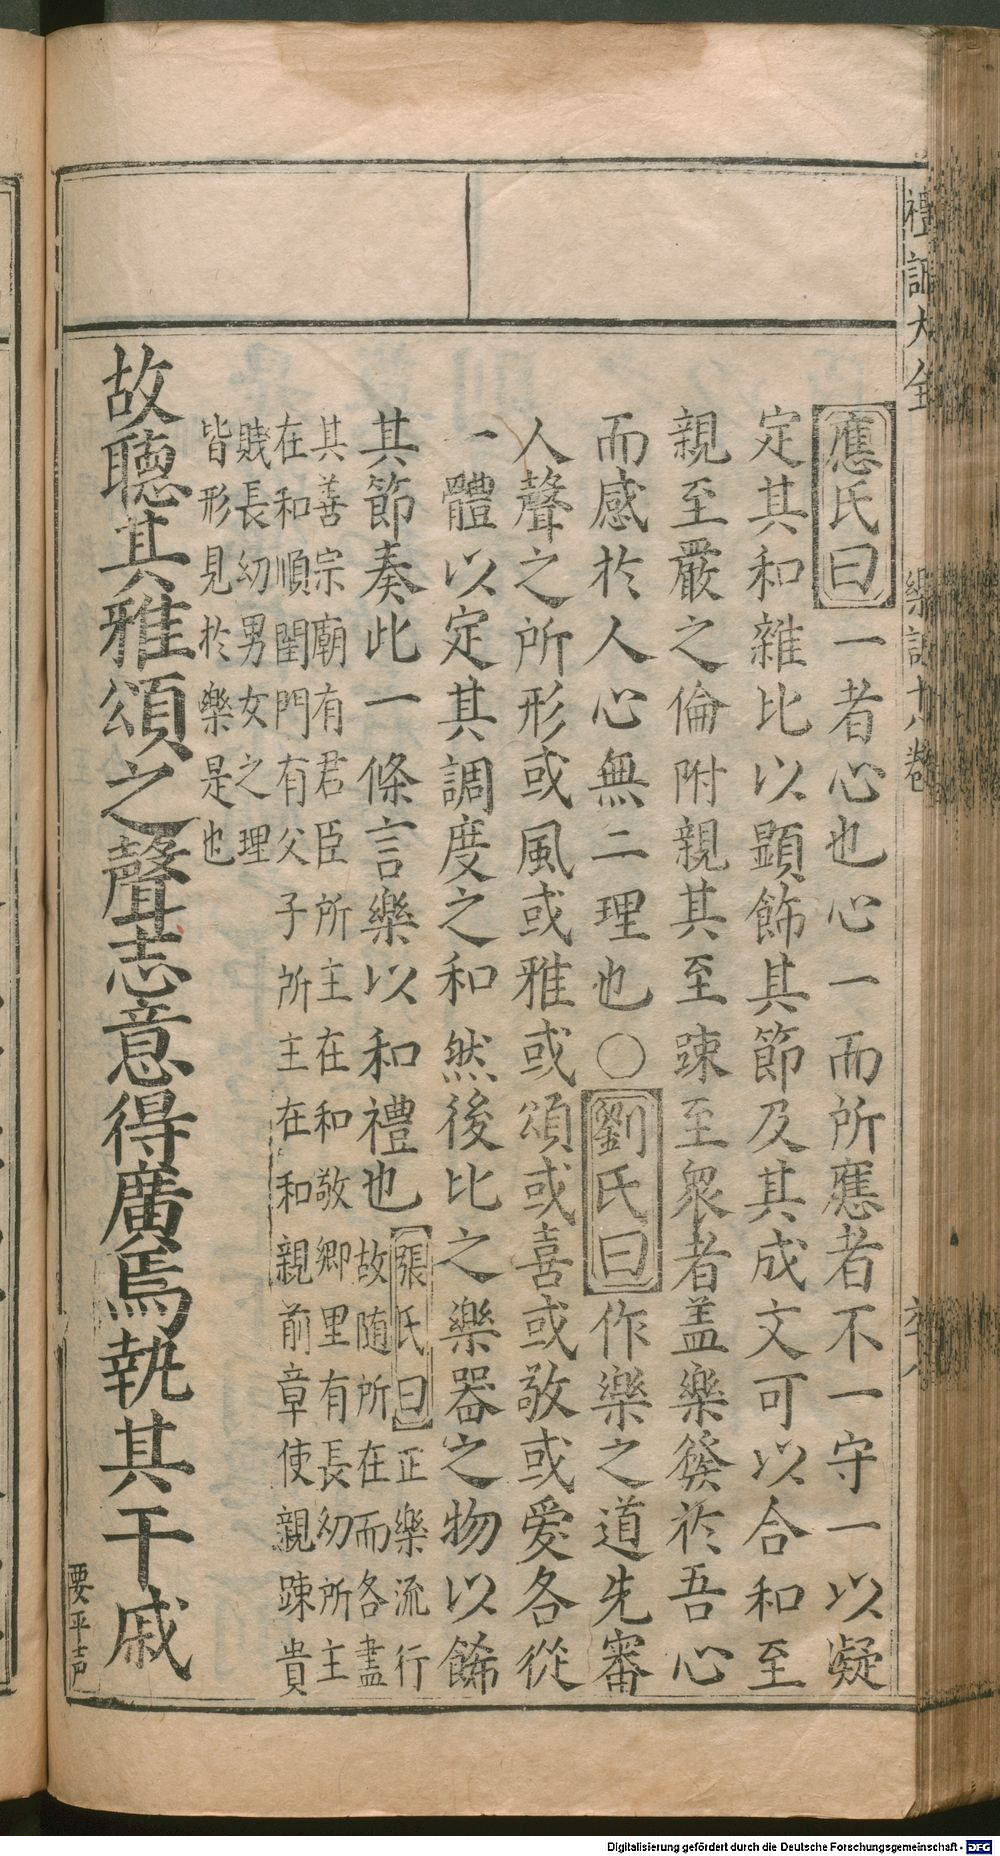 應氏曰一者心也心一而所應者不一守一以凝
定其和雜比以顕飾其節及其成文可以合和至
親至嚴之倫附親其至踈至衆者盖樂發於吾心
而感於人心無二理也○劉氏曰作樂之道先審
人聲之所形或風或雅或頌或喜或敬或愛各從
一體以定其調度之和然後比之樂器之物以餙
其節奏此一條言樂以和禮也張氏曰正樂流行
故随所在而各盡
其善宗廟有君臣所主在和敬鄉里有長幼所主
在和順閨門有父子所主在和親前章使親踈貴
賤長幼男女之理
皆形見於樂是也
故聽其雅頌之聲志意得廣焉執其干戚
要平声
禮記大全
樂記十八卷
Digitalisierung gefördert durch die Deutsche Forschungsgemeinschaft - DFG